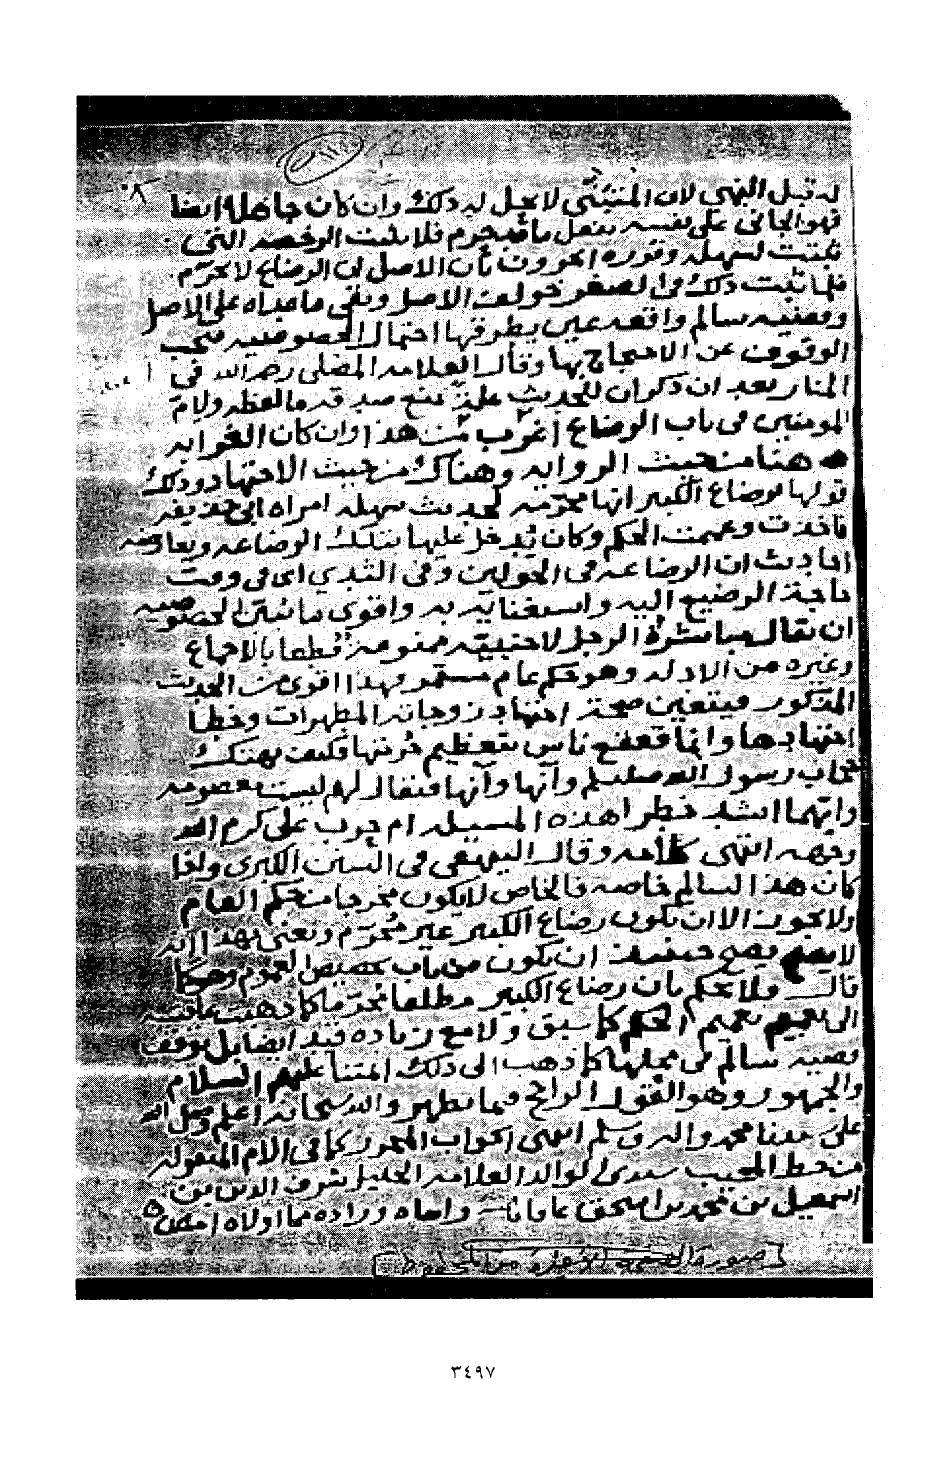 له قبل النهي لان المتبنى لا يحل له ذلك وان كان جاهلا ايضا
فهو الجاني على نفسه بفعل ما فلا يثبت الرخصة التي
ثبتت لسهلة وقرره اخرون بأن الاصل ان الرضاع لا يحرم
فلما ثبت ذلك في الصغر خولف الاصل وبقي ما عداه على الاصل
وقضية سالم واقعة عين يطرقها احتمال الخصوصية فيجب
الوقوف عن الاحتجاج بها وقال العلامة المقبلي رحمه الله في
المنار بعد ان ذكر ان للحديث ولام
المومنين في باب الوضاع اغرب من هذا وان كان الغرابه
هنا من حيث الروايه وهناك من حيث الاجتهاد وذلك
قولها لرضاع الكبير انها محرمه لحديث سهله امراه ابي حذيفه
فاخذت وعممت الحكم وكان يدخل عليها بتلك الرضاعه ويعارضه
احاديث ان الرضاعه في الحولين وفي الثدي اي في وقت
حاجة الرضيع اليه واستغنايه به واقوى ما الخصوصيه
ان يقال مباشرة الرجل لاجنبيه ممنوعة قطعا بالاجماع
وغيره من الادله وهو حكم عام مستمر فهذا اقوى من الحديث
المذكور فيتعين صحة اجتهاد زوجاته المطهرات وخطأ
اجتهادها وانما قعقع ناس بتعظيم حرمتها فكيف بهتك
حجاب رسول الله صلى الله عليه وسلم وانها وانها فيقال لهم ليست بمعصومه
وانهما اشد خطرا هذه المسيله ام حرب علي كرم الله
وجهه انتهى كلامه وقال البيهقي في السنن الكبرى واذا
كان هذا لسالم خاصه فالخاص لا يكون مخرجا من حكم العام
ولا يجوز الا ان يكون رضاع الكبير غير محرم ويعني بهذا انه
لا يصح حينئذ ان يكون من باب تخصيص العموم وهكذا
قال فلا يحكم بان رضاع الكبير مطلقا محرما كما ذهبت عائشه
الى تعميم الحكم كما سبق ولا مع زياده قيد ايضا بل توقف
قضية سالم في محلها كما ذهب الى ذلك ائمتنا عليهم السلام
والجمهور وهو القول الراجح فيما يظهر والله سبحانه اعلم وصلى الله
على سيدنا محمد واله وسلم انتهى الجواب المحرر كما في الام المنقوله
من خط المجيب سيدي الوالد العلامه الجليل شرف الدين بن
اسمعيل بن محمد بن اسحق عافاه وزاده مما اولاه امين
[صورة الصفحة الأخيرة من المخطوط]
٣٤٩٧